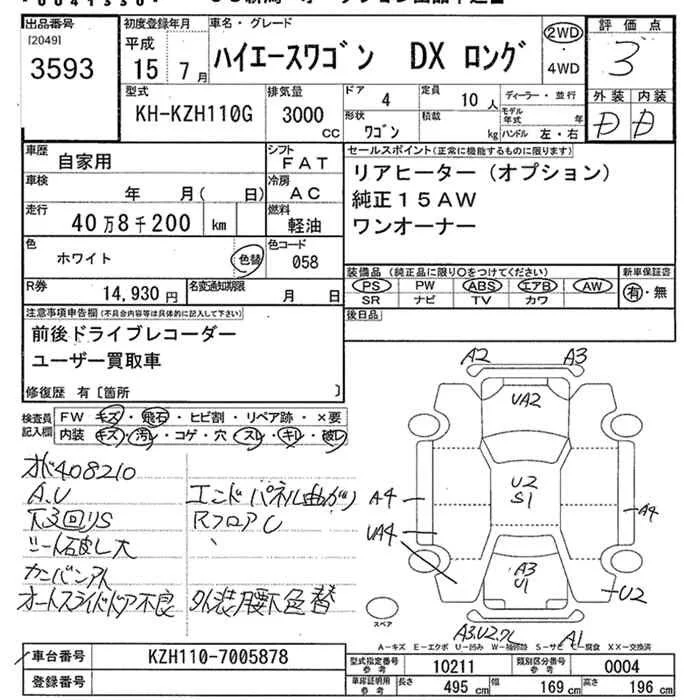 出品番号
[2049]
3593
初度登録年月
平成
15 年 7 月
車名・グレード
ハイエースワゴン DX ロング
2WD
4WD
評価点
3
型式
KH-KZH110G
排気量
3000
CC
ドア
4
定員
10 人
ディーラー・並行
モデル年式 年
形状
ワゴン
積載
kg
ハンドル 左・右
外装 内装
D D
車歴
自家用
シフト
FAT
セールスポイント(正常に機能するものに限ります)
リアヒーター(オプション)
純正15AW
ワンオーナー
車検
年 月( 日)
冷房
AC
走行
40万8千200 km
燃料
軽油
色
ホワイト
色替
色コード
058
装備品(純正品に限り○をつけてください)
PS PW ABS エアB AW
SR ナビ TV カワ
新車保証書
有・無
R券
14,930円
名変通知期限
月 日
後日品
注意事項申告欄(不具合内容等は具体的に記入して下さい)
前後ドライブレコーダー
ユーザー買取車
修復歴 有[箇所 ]
検査員記入欄
FW キズ・飛石・ヒビ割・リペア跡・×要
内装 キズ・汚レ・コゲ・穴・スレ・キレ・破レ
408210
A.U
下廻りS
シート破レ大
カンバンアト
オートスライドドア不良
エンドパネル曲がり
RフロアU
外装腰下色替
A2
A3
UA2
U2
S1
A4
UA4
A4
A3
U1
U2
A3.U2
A1
スペア
A-キズ E-エクボ U-凹み W-補修跡 S-サビ C-腐食 XX-交換済
車台番号
KZH110-7005878
登録番号
型式指定番号
参考
10211
類別区分番号
参考
0004
車庫証明用
参考
長さ 495 cm 幅 169 cm 高さ 196 cm